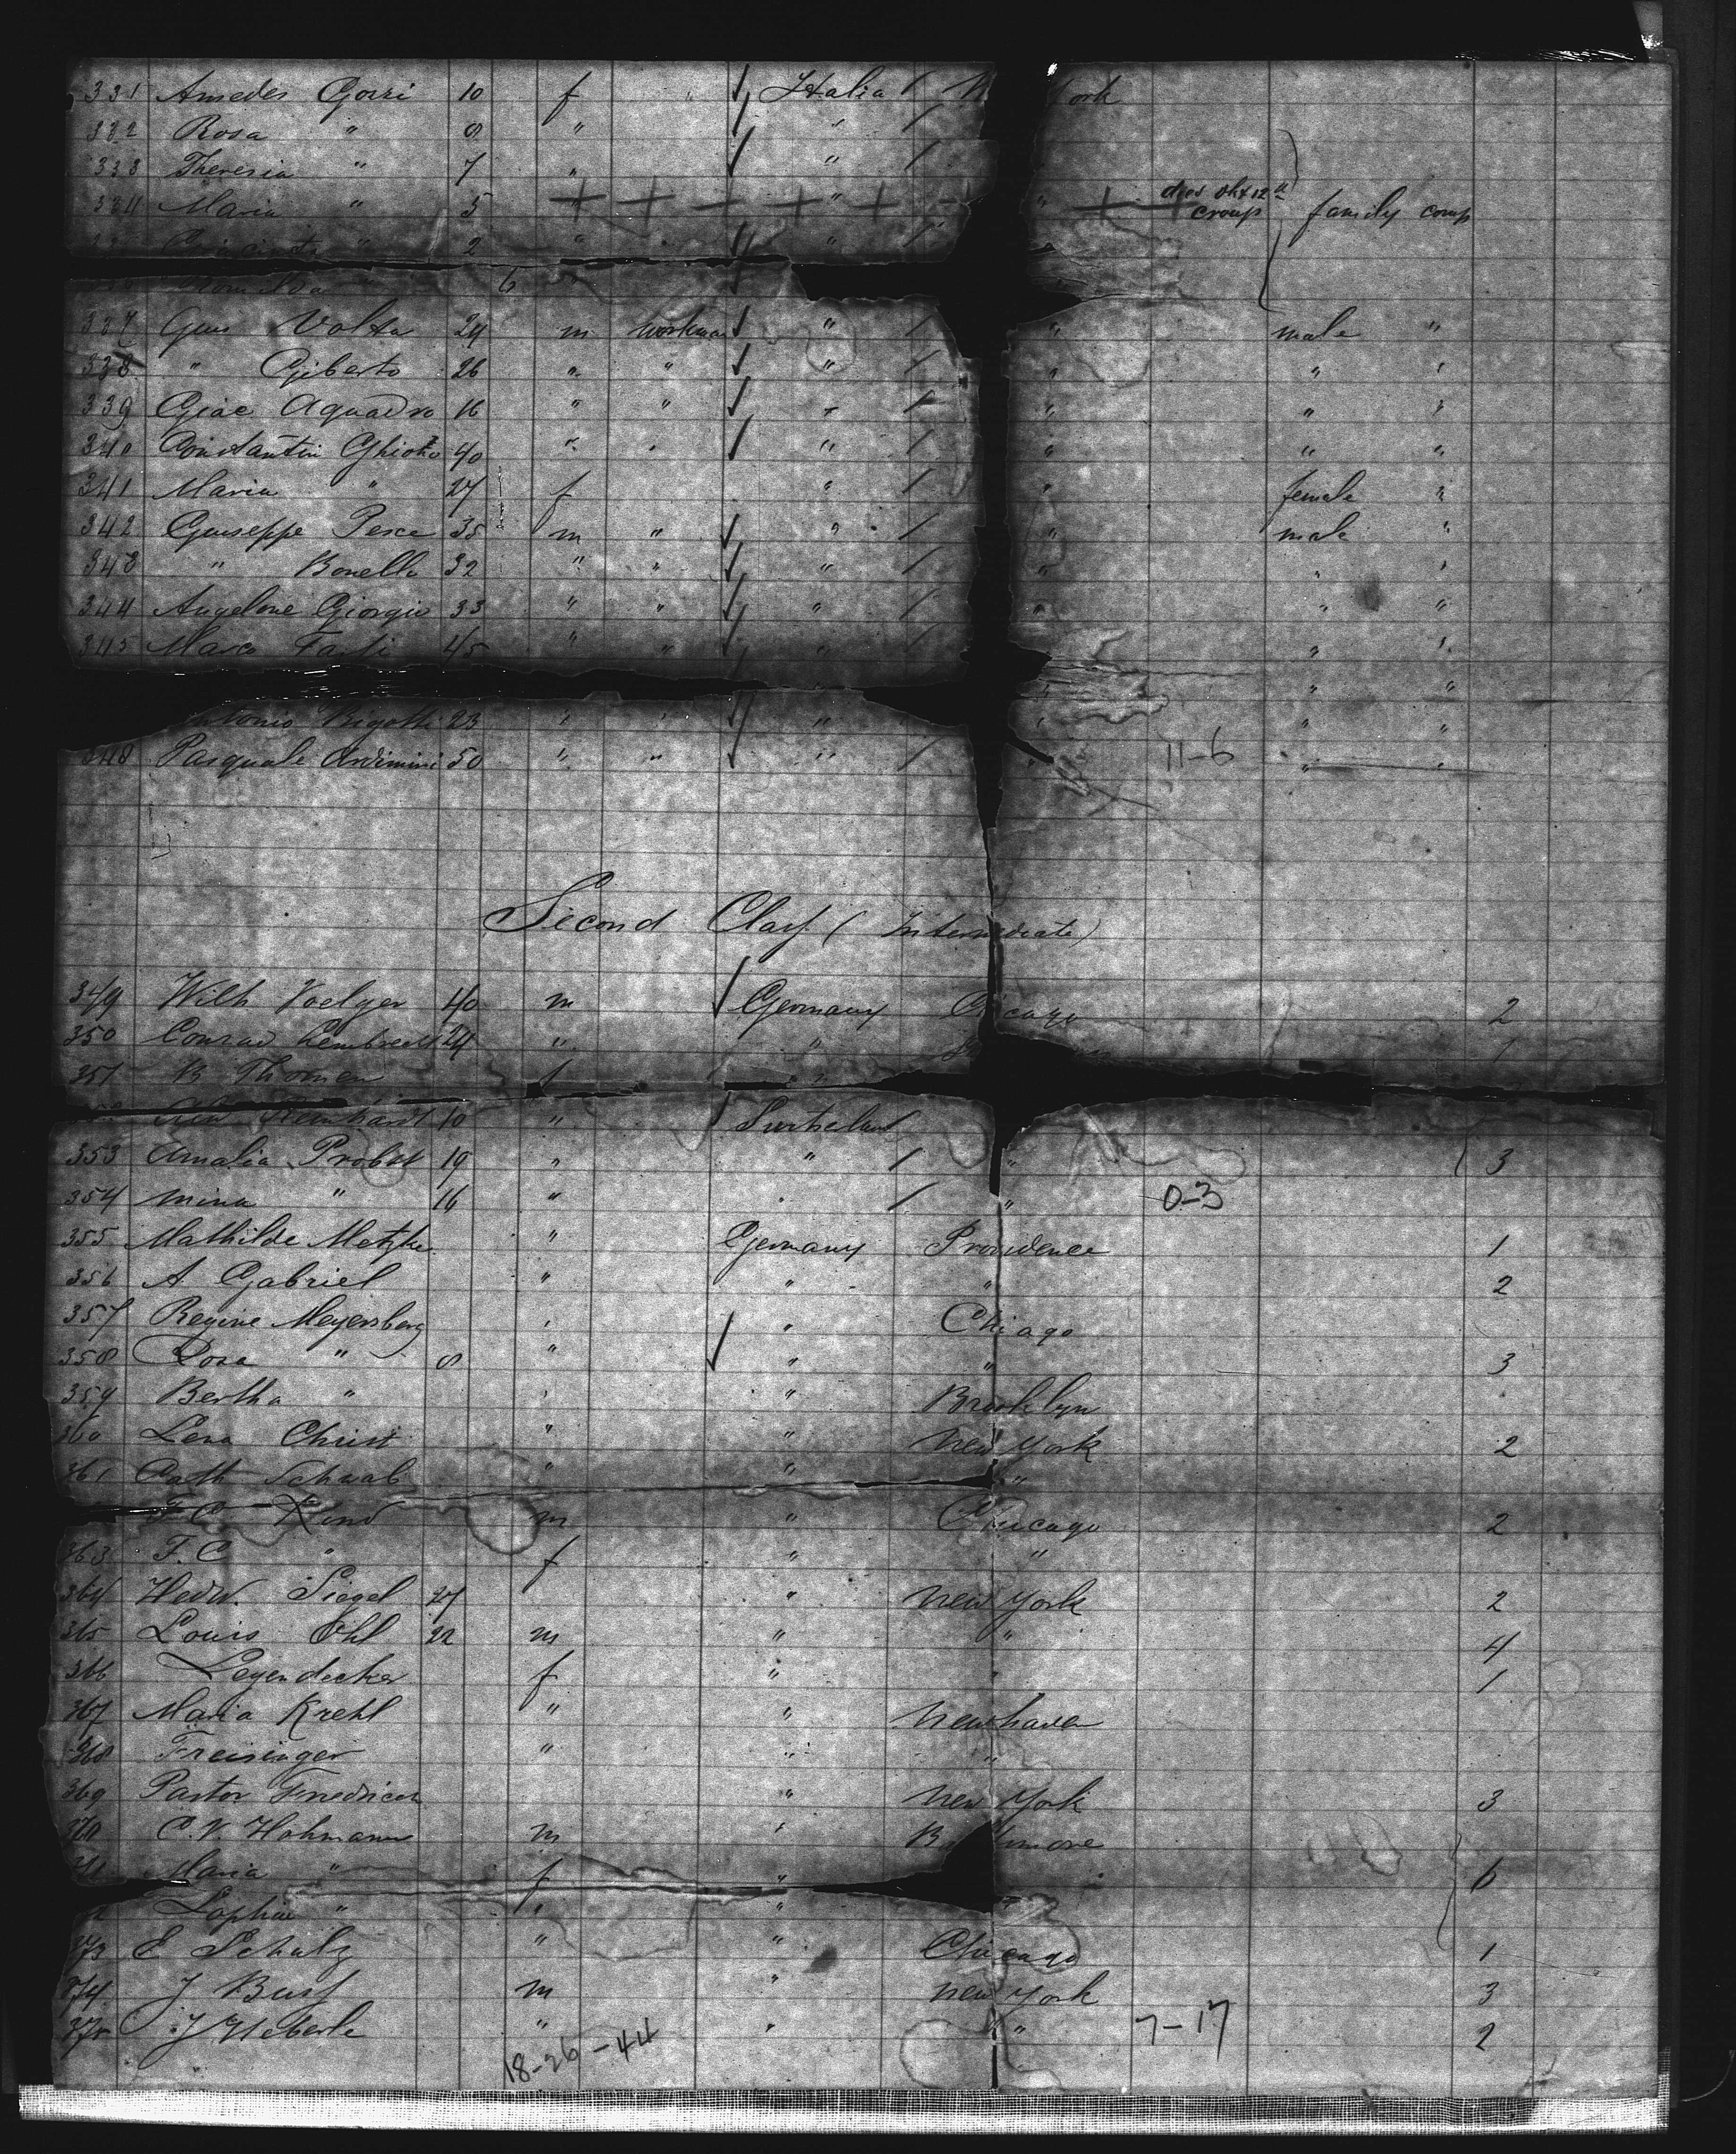 331 Amedes Gorri 10 f Italia / York
332 Rosa " 8 " " /
333 Theresia " 7 " " /
334 Maria " 5 + + + + " + + " + + died Okt 12th croup family comp
" 2 " " /
6
337 Gius Volta 24 m workman " / " male "
338 " Giberto 26 " " " / " " "
339 Giac Aquadro 16 " " " / " " "
340 Constantin Ghiotto 40 " " " / " " "
341 Maria " 27 f " / " female "
342 Guiseppe Pesce 35 m " " / " male "
343 " Bonello 32 " " " / " " "
344 Angelone Giorgio 33 " " " / " " "
345 Marco 45 " " " / " "
" " "
Antonio Bigotti 23 " " " " " "
348 Pasquale 50 " " " / " 11-6 " "
Second Class (Intermediate)
349 Wilh Voelger 40 m Germany 2
350 Conrad Lembrecht 24 " " 1
351 B Thomen f "
Reinhardt 10 " /
353 Amalia Probst 19 " " / " 3
354 Mina " 16 " " / " 0-3
355 Mathilde Metzke " Germany Providence 1
356 A. Gabriel " " " 2
357 Regine Meyersberg " " Chicago
358 Rosa " 8 " " " 3
359 Bertha " " " Brooklyn
360 Lena Christ " " New York 2
361 Cath Schwab " " "
Kind m " Chicago 2
363 F. C " f " "
364 Hedw. Siegel 27 " New York 2
365 Louis Ohl 22 m " " 4
366 Leyendecker f " " 1
367 Maria Krehl " " Newhaven
368 Freisinger " " "
369 Pastor Friedrich " New York 3
370 C. V. Hohmann m " Baltimore
371 Maria " f " 6
Sophie " " " "
373 E Schulz " " Chicago 1
374 J Buss m " New York 3
375 J Heberle " " " 7-17 2
18-26-44